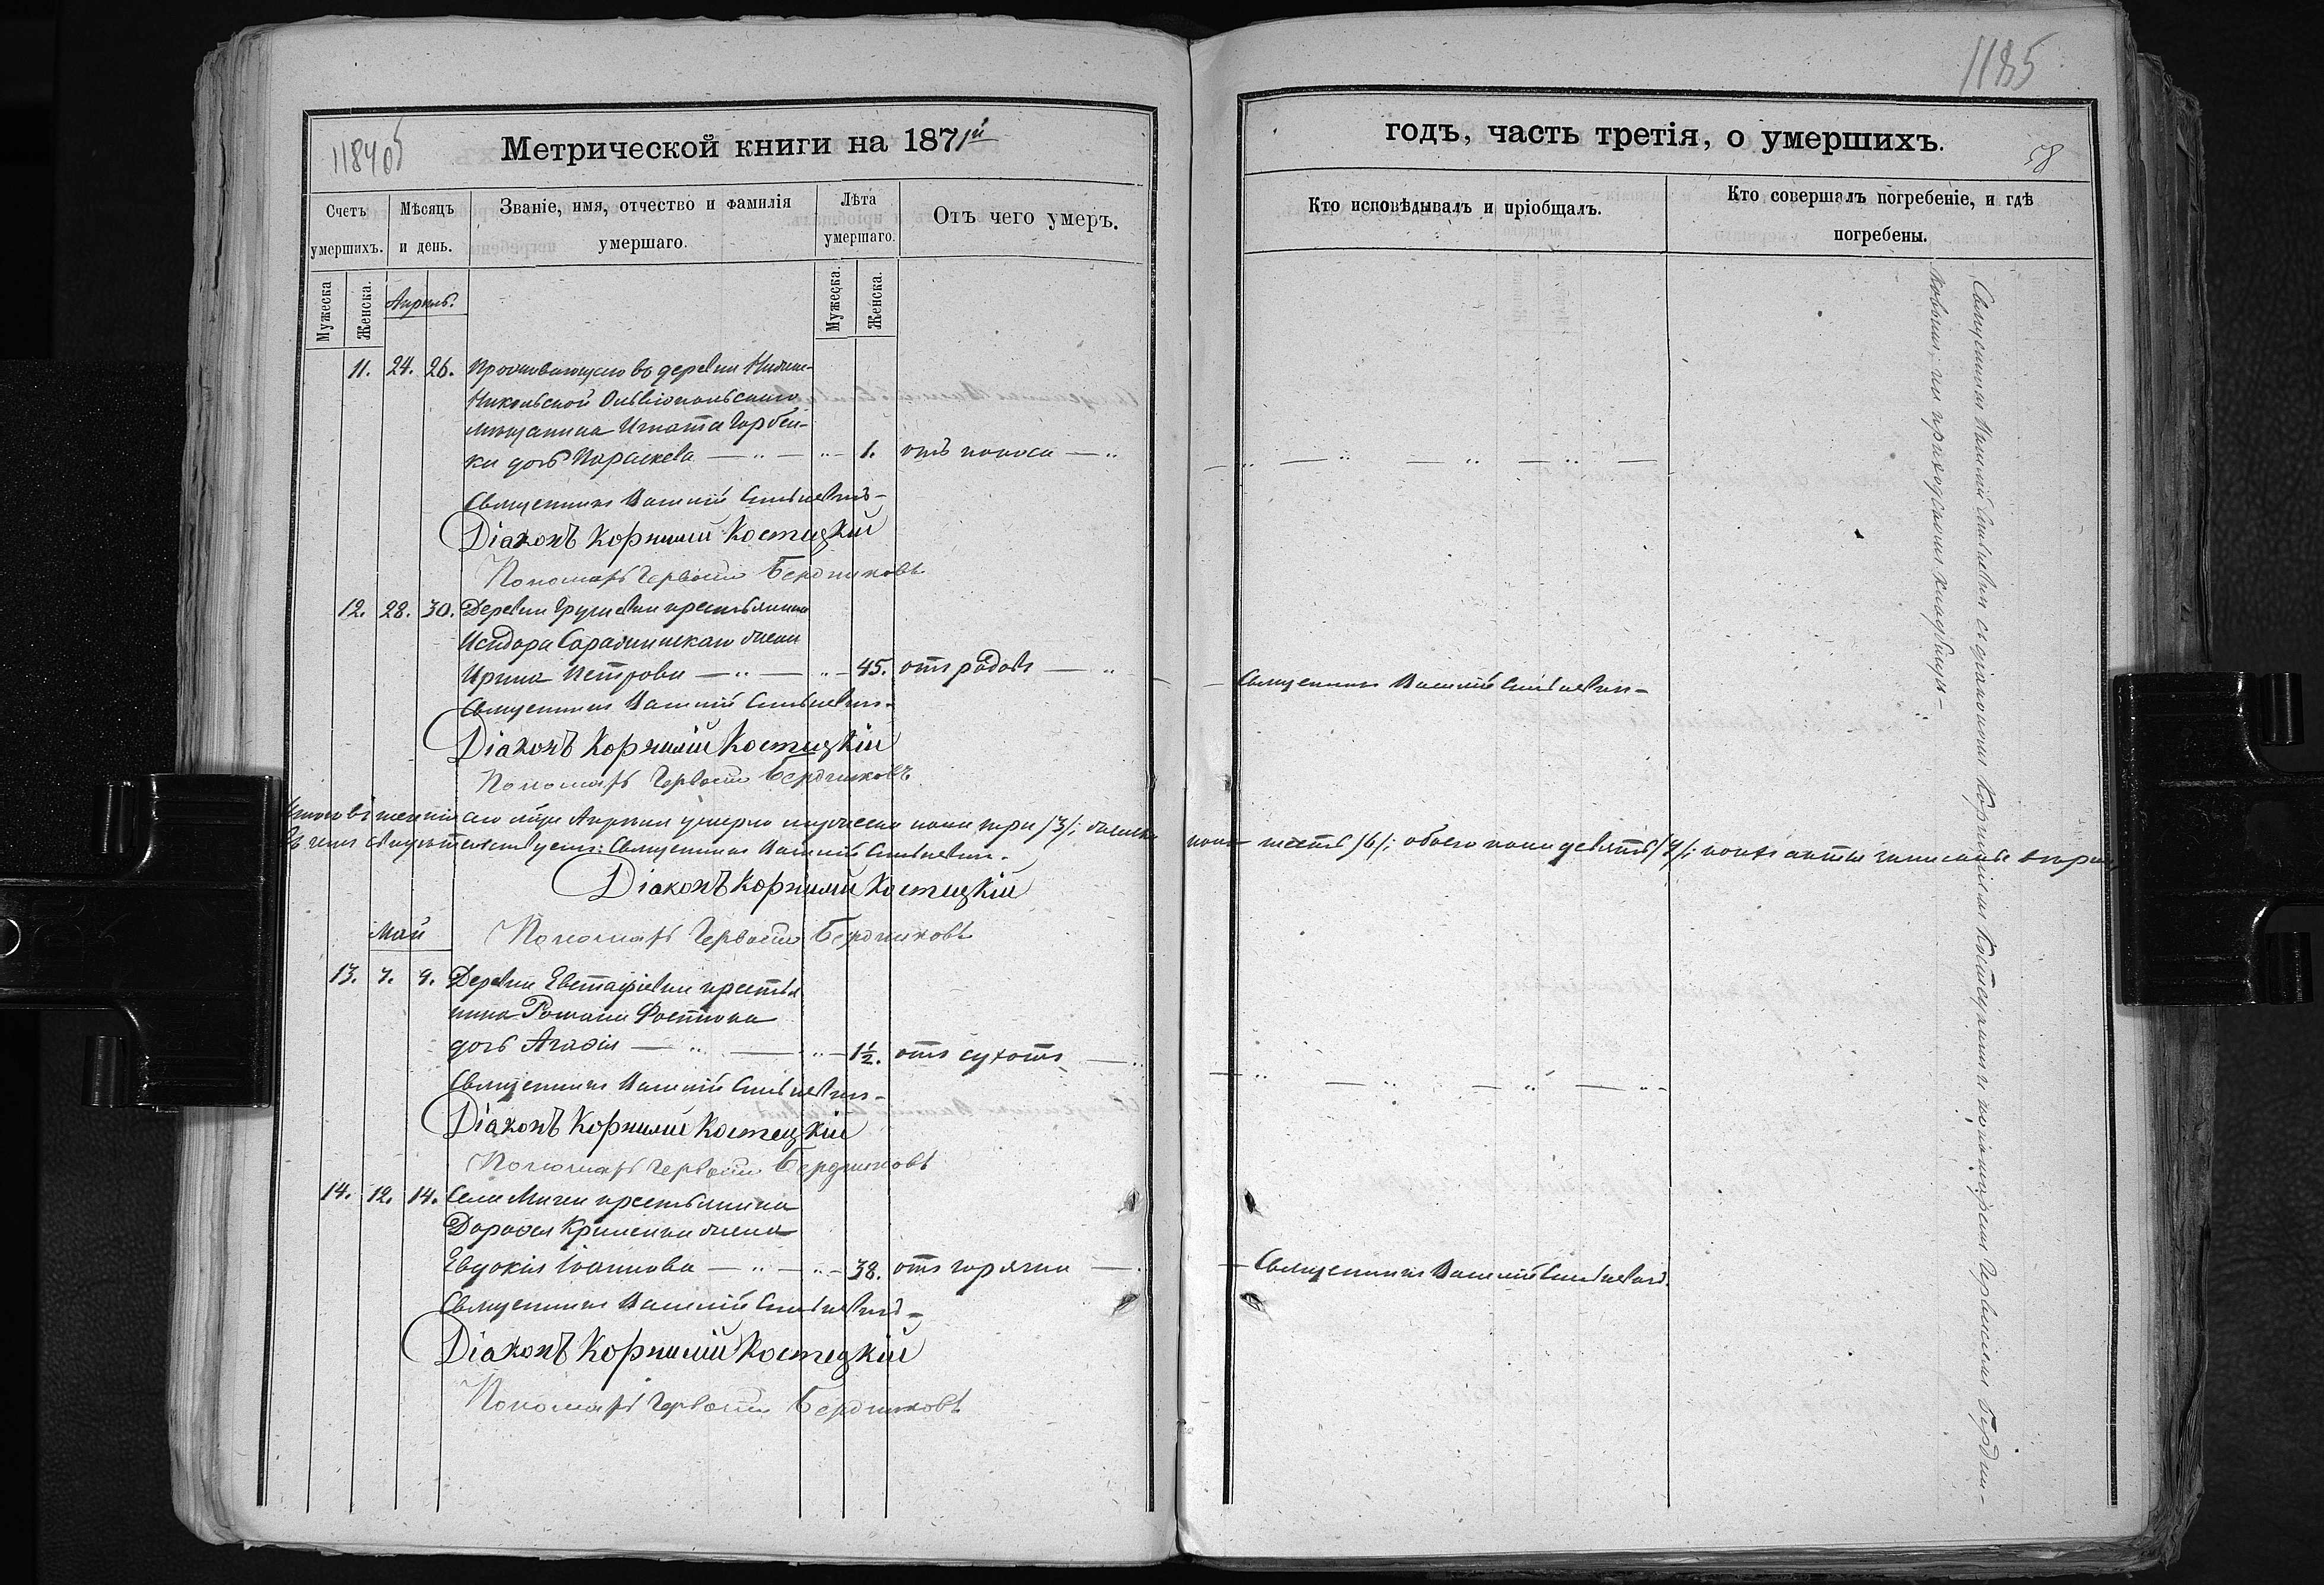 1185
1184об
Метрической книги на 1871й
годъ, часть третія, о умершихъ.
58
Счетъ умершихъ.
Мѣсяцъ и день.
Званіе, имя, отчество и фамилія умершаго.
Лѣта умершаго.
Отъ чего умеръ.
Кто исповѣдывалъ и пріобщалъ.
Кто совершалъ погребеніе, и гдѣ погребены.
Мужеска
Женска.
Мужеска.
Женска.
Апрель.
11. 24. 26. Проживающаго въ деревни Нижне-
Никольской Ольвіопольскаго
мещанина Игната Горбен-
ки дочь Параскева — 1. отъ поноса —
Священникъ Василій Сильчевичъ-
Діаконъ Корнилій Костецкій
Пономарь Гервасій Бердниковъ
12. 28. 30. Деревни Грушевки крестьянина
Исидора жена
Ирина Петрова — 45. отъ родовъ —
Священникъ Василій
Священникъ Василій
Діаконъ Корнилій Костецкій
Пономарь Гервасій Бердниковъ
Итого въ теченіи сего мѣсяца Апреля умерло мужеска пола три /3/; женска пола шесть /6/; обоего пола девять /9/; коихъ акты записаны вѣрно,
въ чемъ свидѣтельствуемъ: Священникъ Василій
Діаконъ Корнилій Костецкій
Пономарь Гервасій Бердниковъ
Май
13. 7. 9. Деревни Евстафіевки крестья
нина Романа
дочь Агафія — 1½. отъ сухотъ —
Священникъ Василій
Діаконъ Корнилій Костецкій
Пономарь Гервасій Бердниковъ
14. 12. 14. Села Мигеи крестьянина
Дорофея жена
Евдокія Іоаннова — 38. отъ горячки —
Священникъ Василій
Священникъ Василій
Діаконъ Корнилій Костецкій
Пономарь Гервасій Бердниковъ
Священникъ Василій съ діакономъ Корниліемъ Костецкимъ и пономаремъ Гервасіемъ Бердни-
ковымъ, на приходскомъ кладбищѣ-